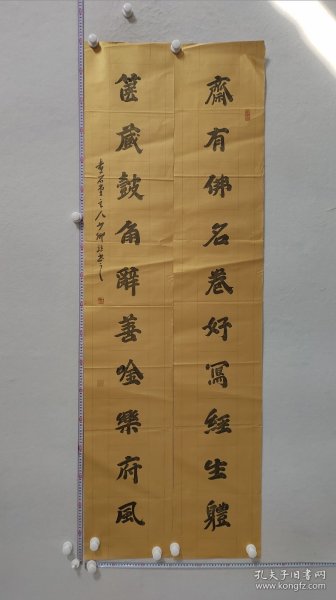 齋有佛名卷好寫經生體
篋藏鼓角辭善唫樂府風
孔夫子旧书网
www.kongfz.com